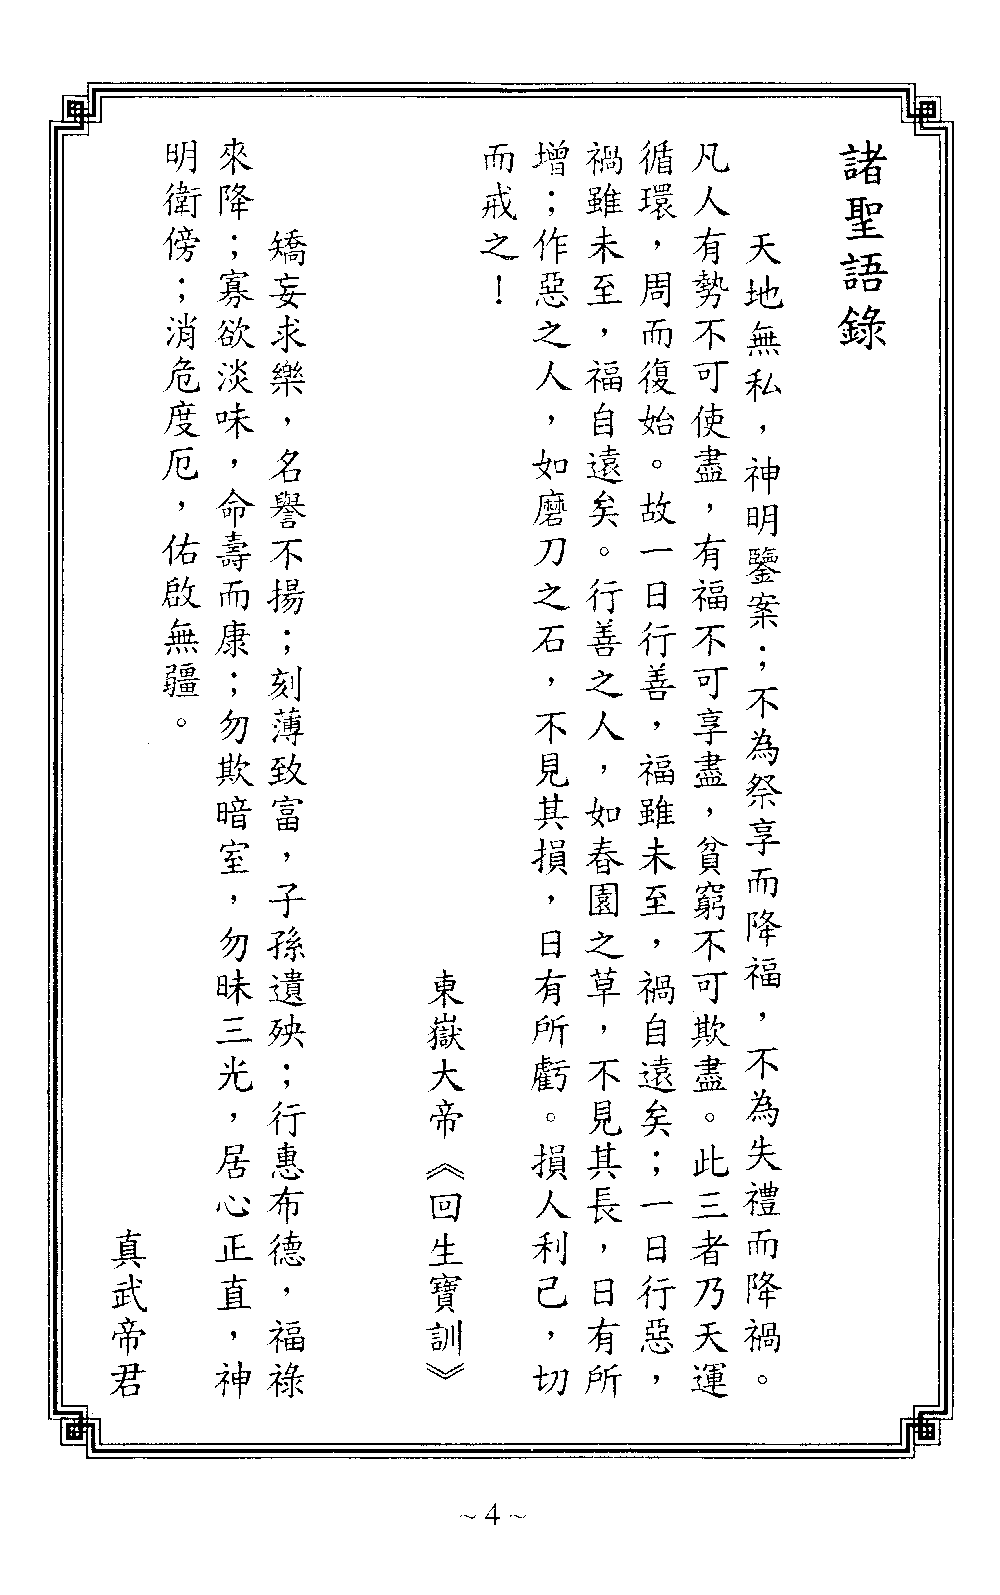 諸聖語錄
天地無私，神明鑒案；不為祭享而降福，不為失禮而降禍。
凡人有勢不可使盡，有福不可享盡，貧窮不可欺盡。此三者乃天運
循環，周而復始。故一日行善，福雖未至，禍自遠矣；一日行惡，
禍雖未至，福自遠矣。行善之人，如春園之草，不見其長，日有所
增；作惡之人，如磨刀之石，不見其損，日有所虧。損人利己，切
而戒之！
東嶽大帝《回生寶訓》
矯妄求樂，名譽不揚；刻薄致富，子孫遺殃；行惠布德，福祿
來降；寡欲淡味，命壽而康；勿欺暗室，勿昧三光，居心正直，神
明衛傍；消危度厄，佑啟無疆。
真武帝君
~4~